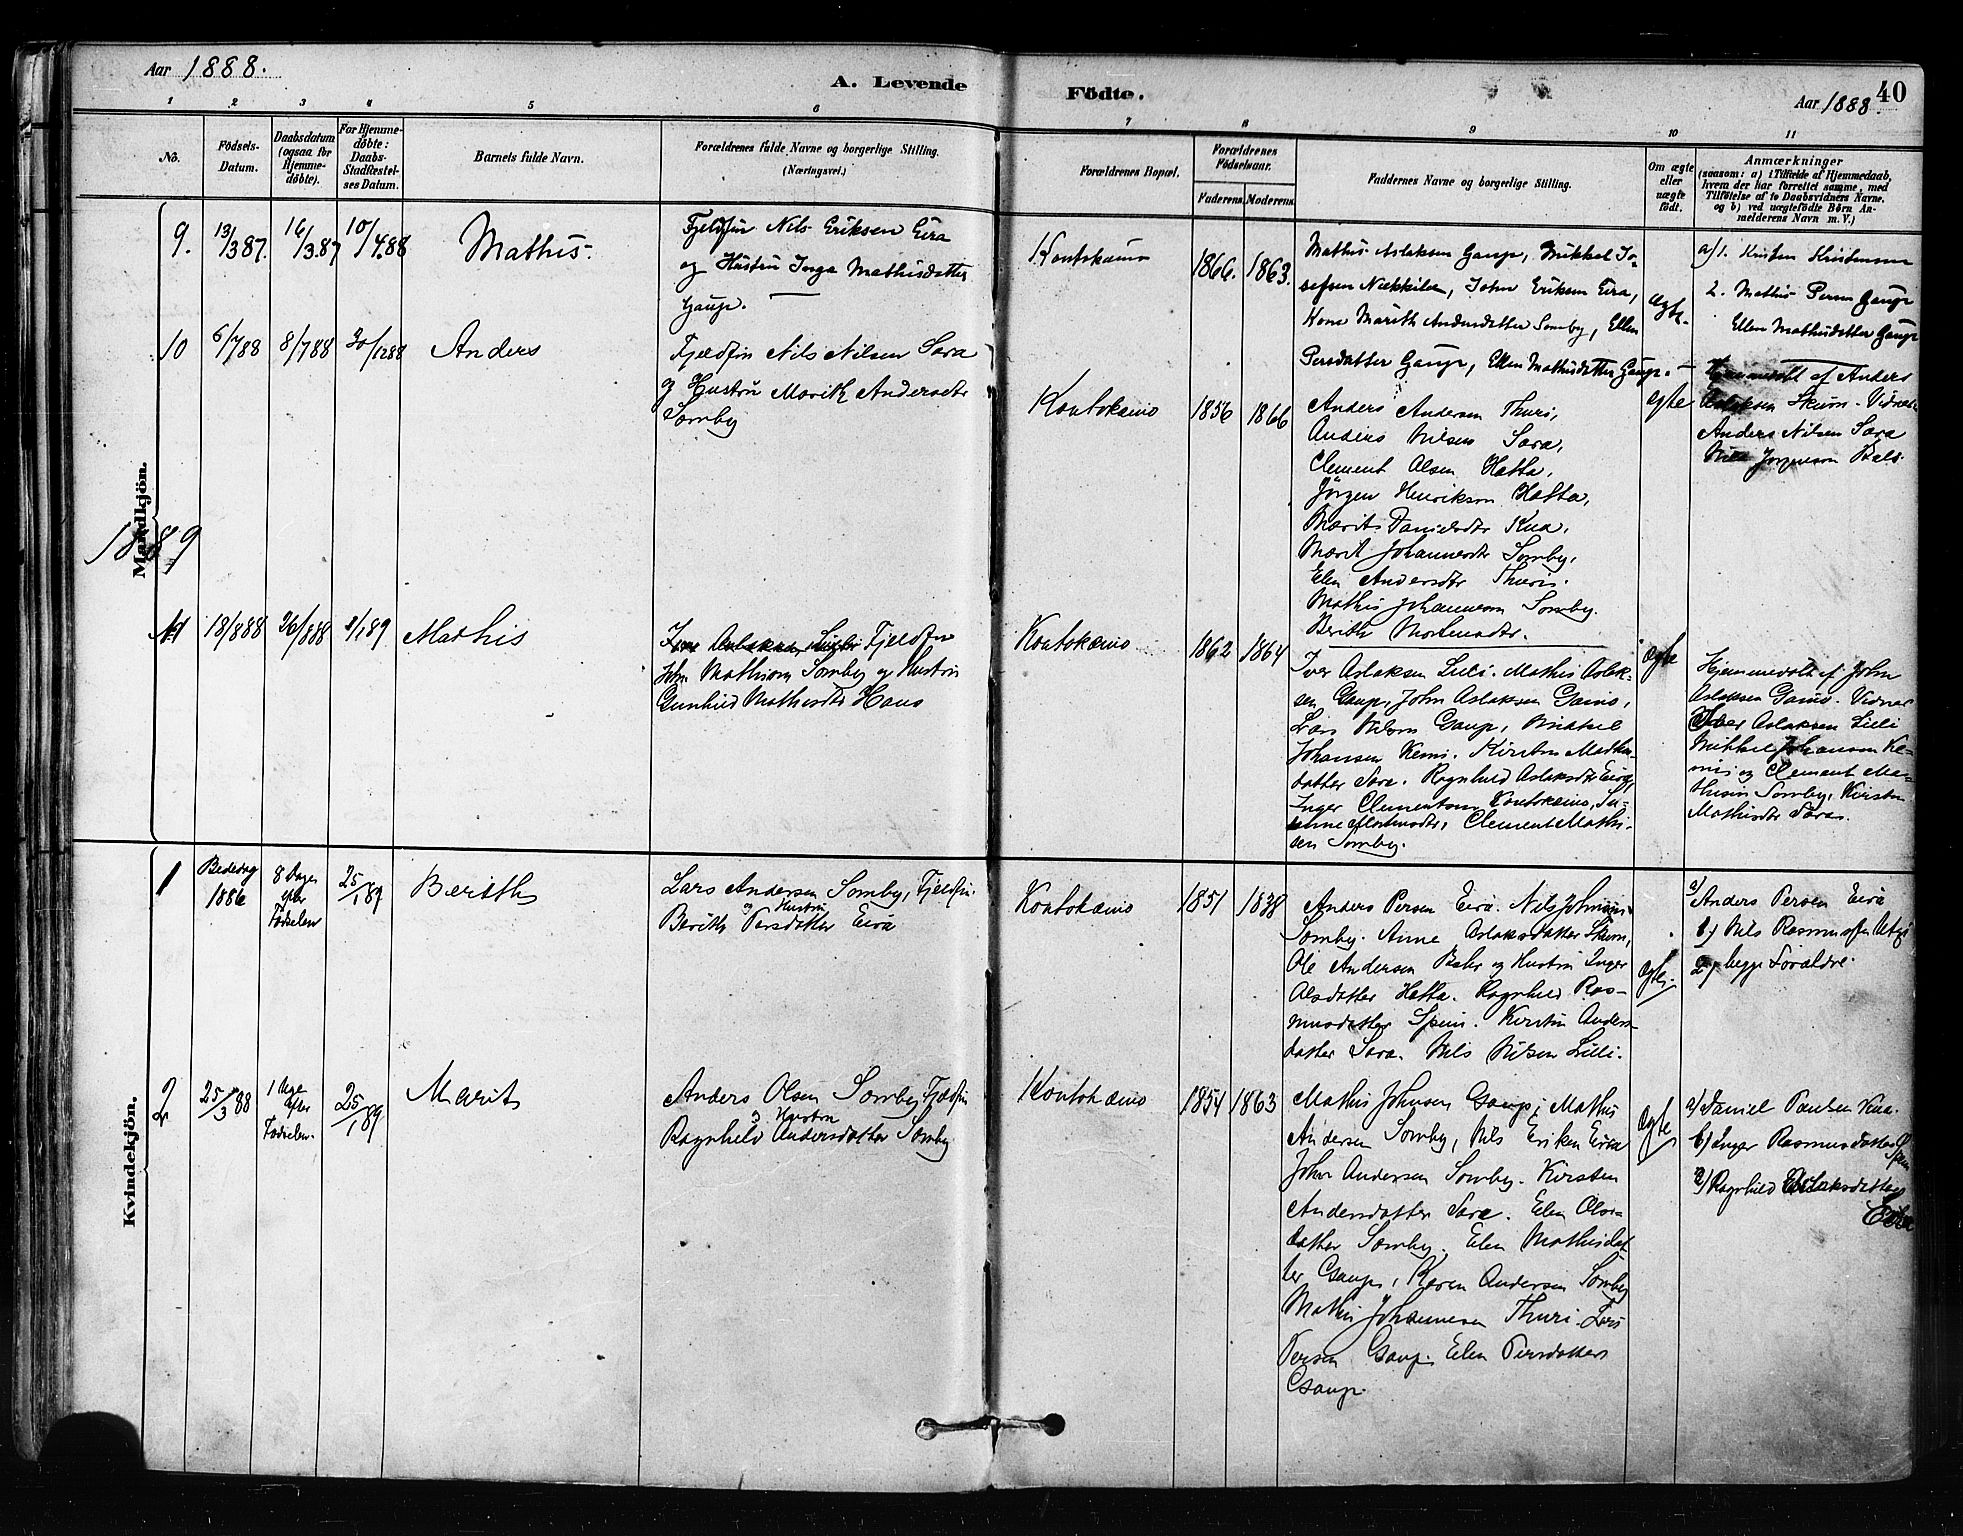 Aar 1888.
A. Levende Födte.
Aar 1888.
40
1 2 3 4 5 6 7 8 9 10 11
No.
Födsels-Datum.
Daabsdatum (ogsaa for Hjemme-döbte).
For Hjemme-döbte: Daabs-Stadfæstel-ses Datum.
Barnets fulde Navn.
Forældrenes fulde Navne og borgerlige Stilling.
(Næringsvei.)
Forældrenes Bopæl.
Forældrenes Födselsaar.
Faderens. Moderens.
Faddernes Navne og borgerlige Stilling.
Om ægte eller uægte födt.
Anmærkninger
(saasom: a) i Tilfælde af Hjemmedaab,
hvem der har forrettet samme, med
Tilföielse af to Daabsvidners Navne.
og b) ved uægtefödte Börn An-
melderens Navn m. V.)
Mandkjön.
1889
9. 13/3 87. 16/3.87 10/4.88 Mathis.
Fjeldfin Nils Eriksen Eira
og Hustru Inga Mathisdatter
Gaup.
Koutokæino 1866. 1863.
Mathis Aslaksen Gaup, Mikkel Jo-
sefsen Nækkila, John Eriksen Eira,
Kone Marith Andersdatter Somby, Ellen
Persdatter Gaup, Ellen Mathisdatter Gaup.
ægte.
a) 1. Kristen Kristensen
2. Mathis Persen Gaup
Ellen Mathisdatter Gaup
10 6/7 88 8/7 88 30/12 88 Anders
Fjeldfin Nils Nilsen Sara
og Hustru Marith Andersdtr
Somby
Koutokæino 1856 1866
Anders Andersen Thuri,
Anders Nilsen Sara,
Clement Olsen Hætta,
Jörgen Henriksen Hætta,
Marit Danielsdtr Kua,
Marit Johannesdtr Somby,
Elen Andersdtr Thuri.
Mathis Johannesen Somby.
Berith Mortensdtr.
ægte
Hjemmedöbt af Anders
Aslaksen Skum. Vidner
Anders Nilsen Sara
Jörgensen Bals.
11 18/8 88 26/8 88 1/1 89 Mathis
Fjeldfin
John Mathisen Somby og Hustru
Gunhild Mathisdtr Haus
Koutokæino 1862 1864
Iver Aslaksen Lilli. Mathis Aslak-
sen Gaup, John Aslaksen Gaino,
Lars Nilsen Gaup, Mikkel
Johansen Kemi. Kirsten Mathis-
datter Sara. Ragnhild Aslaksdtr Eira,
Inger Clementsen Koutokæino, Su-
sanne Mortensdtr, Clement Mathi-
sen Somby.
ægte
Hjemmedöbt af John
Aslaksen Gaino. Vidner
Iver Aslaksen Lilli
Mikkel Johansen Ke-
mi og Clement Ma-
thisen Somby, Kirsten
Mathisdtr Sara.
Kvindekjön.
1 Bededag 1886 8 Dage efter Födselen 25/1 89 Berith
Lars Andersen Somby, Fjeldfin.
og Hustru
Berith Persdatter Eira
Koutokæino 1851 1838
Anders Persen Eira. Nils Johnsen
Somby. Anne Aslaksdatter Skum,
Ole Andersen Bahr og Hustru Inger
Olsdatter Hætta. Ragnhild Ras-
musdatter Spein. Kirsten Anders-
datter Sara. Nils Nilsen Lilli.
ægte.
a) Anders Persen Eira
1) Nils Rasmussen Utsi
2) begge Forældre.
2 25/3 88 1 Uge efter Födselen. 25/1 89 Marit
Anders Olsen Somby Fjeldfin
og Hustru
Ragnhild Andersdatter Somby
Koutokæino 1854 1863
Mathis Johnsen Gaup, Mathis
Andersen Somby, Nils Eriksen Eira
John Andersen Somby. Kirsten
Andersdatter Sara. Elen Ols-
datter Somby. Elen Mathisdat-
ter Gaup, Karen Andersen Somby
Mathis Johannesen Thuri. Lars
Persen Gaup. Elen Persdatter
Gaup.
ægte
a) Daniel Paulsen Kua.
b) Inger Rasmusdatter Spein
2) Ragnhild Aslaksdatter
Eira